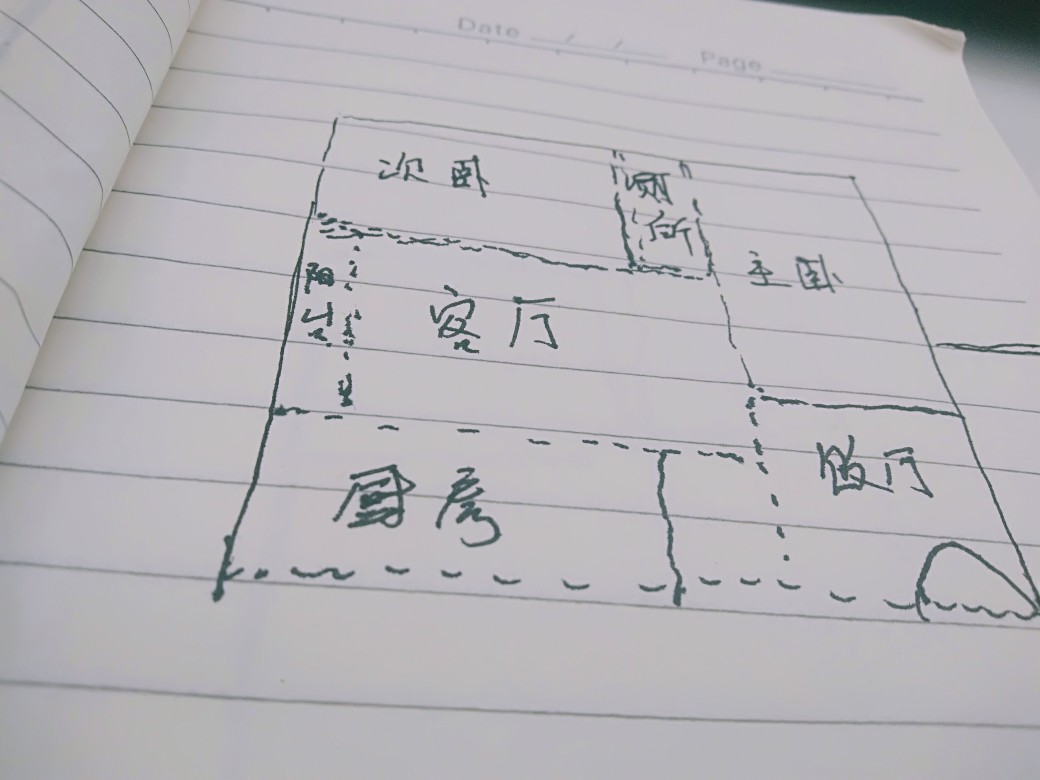 Date / / Page
次卧
厕所
主卧
阳台
客厅
饭厅
厨房